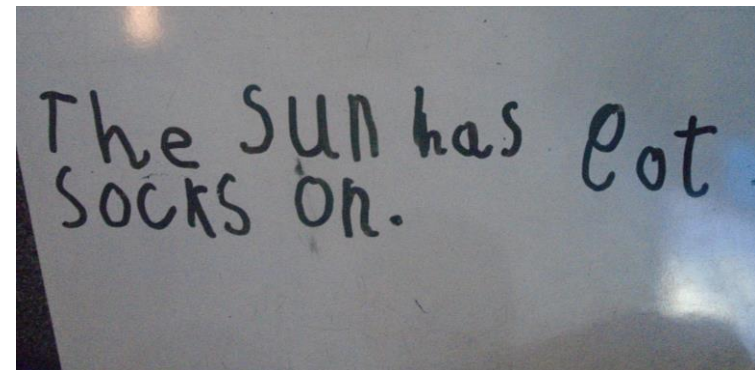 The sun has eot
socks on.